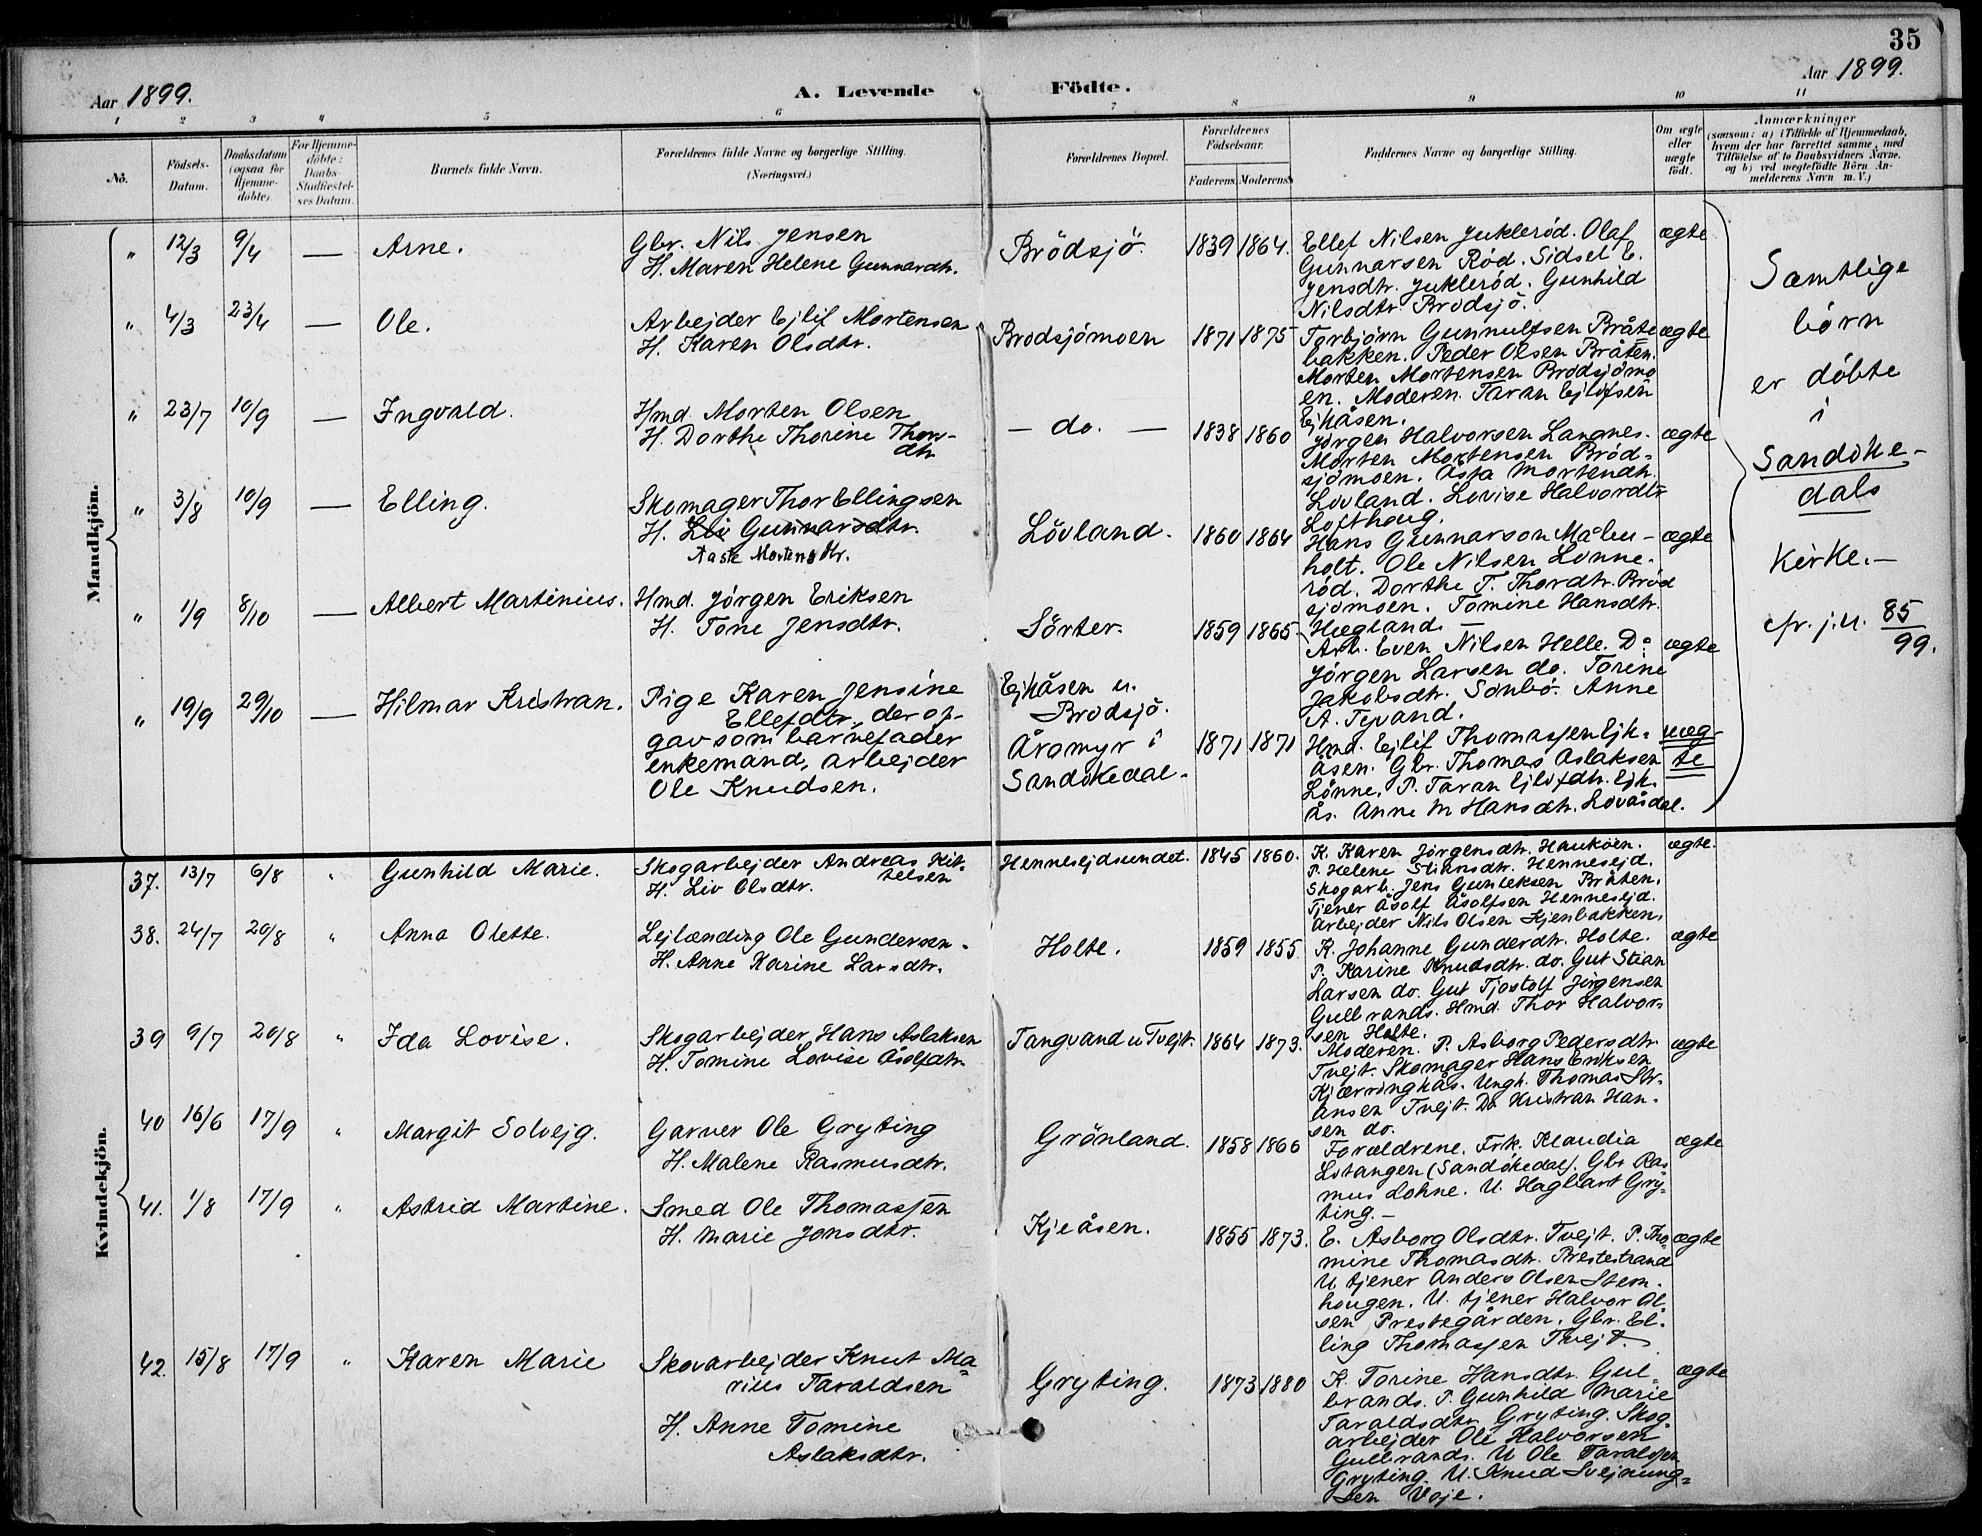 35
Aar 1899.
A. Levende Födte.
Aar 1899.
1 2 3 4 5 6 7 8 9 10 11
No.
Födsels-
Datum.
Daabsdatum
(ogsaa for
Hjemme-
döbte)
For Hjemme-
döbte:
Daabs-
Stadfæstel-
ses Datum.
Barnets fulde Navn.
Forældrenes fulde Navne og borgerlige Stilling.
(Næringsvei.)
Forældrenes Bopæl.
Forældrenes
Födselsaar.
Faderens Moderens
Faddernes Navne og borgerlige Stilling.
Om ægte
eller
uægte
födt.
Anmærkninger
(saasom: a) i Tilfælde af Hjemmedaab,
hvem der har forrettet samme, med
Tilföielse af to Daabsvidners Navne,
og b) ved uægtefödte Börn An-
melderens Navn m. V.)
Mandkjön.
" 12/3 9/4 — Arne.
Gbr. Nils Jensen
H. Maren Helene Gunnardtr.
Brödsjö. 1839 1864.
Ellef Nilsen Juklerød. Olaf
Gunnarsen Rød. Sidsel E.
Jensdtr. Juklerød. Gunhild
Nilsdtr. Brodsjö.
ægte
" 4/3 23/4 — Ole.
Arbejder Ejlif Mortensen
H. Karen Olsdtr.
Brodsjömoen 1871 1875
Torbjörn Gunnulfsen Bråte
bakken. Peder Olsen Bråten.
Morten Mortensen Brodsjömo
en. Moderen. Taran Ejlifsen
Ejkåsen.
ægte
" 23/7 10/9 — Ingvald.
Hmd. Morten Olsen
H. Dorthe Thorine Thor-
dtr.
— do. — 1838 1860
Jørgen Halvorsen Langnes.
Morten Mortensen Bröd-
sjömoen. Åsta Mortendtr.
Lovland. Lovise Halvordtr
Lofthoug.
ægte
" 3/8 10/9 — Elling.
Skomager Thor Ellingsen
H. Liv Gunnarsdtr.
Aaste Mortensdtr.
Lövland. 1860 1864
Hans Gunnarson Måbu-
holt. Ole Nilsen Lönne-
rød. Dorthe T. Thordtr. Bröd
sjömoen. Tomine Hansdtr.
Hægland.
ægte
" 1/9 8/10 — Albert Martinius.
Hmd. Jörgen Eriksen
H. Tone Jensdtr.
Sörter. 1859 1865.
Arb. Even Nilsen Helle. Do
Jörgen Larsen do. Torine
Jakobsdtr. Sønbö. Anne
A. Tyvand.
ægte
" 19/9 29/10 — Hilmar Kristian.
Pige Karen Jensine
Ellefdtr., der op-
gav som barnefader
enkemand, arbejder
Ole Knudsen.
Ejkåsen u.
Brodsjö.
Åromyr i
Sandökedal.
1871 1871
Hmd. Ejlif Thomassen Ejk-
åsen. Gbr. Thomas Aslaksen
Lönne. P. Taran Ejlifdtr. Ejk
ås. Anne M Hansdtr. Lövåsdal.
uæg-
te
Samtlige
børn
er døbte
i
Sandöke-
dals
Kirke.—
cfr. j.n. 85/99.
Kvindekjön.
37. 13/7 6/8 " Gunhild Marie.
Skogarbejder Andreas Kit-
telsen
H. Liv Olsdtr.
Hennesejdsundet. 1845 1860.
K. Karen Jørgensdtr. Hauköen.
P. Helene Stiansdtr. Hennesejd.
Skogarb. Jens Gunleksen Bråten.
Tjener Åsolf Åsolfsen Hennesejd.
Arbejder Nils Olsen Kjenbakken.
ægte.
38. 24/7 20/8 " Anna Olette.
Lejlænding Ole Gundersen.
H. Anne Karine Larsdtr.
Holte. 1859 1855.
K. Johanne Gunderdtr. Holte.
P. Karine Knudsdtr. do. Gut Stian
Larsen do. Gut Tjostolf Jörgensen
Gulbrands. Hmd. Thor Halvor-
sen Holte.
ægte
39 9/7 20/8 " Ida Lovise.
Skogarbejder Hans Aslaksen
H. Tomine Lovise Åsolfdtr.
Tangvand u Tvejt. 1864 1873.
Moderen. P. Asborg Pedersdtr.
Tvejt. Skomager Hans Eriksen
Kjærringkås. Ungk. Thomas Sti-
ansen Tvejt. Do Kristian Han-
sen do.
ægte
40 16/6 17/9 " Margit Solvejg.
Garver Ole Gryting
H. Malene Rasmusdtr.
Grönland. 1858 1866
Forældrene. Frk. Klaudia
Lotangen (Sandökedal). Gbr. Ras
mus Lohne. U. Hagbart Gry-
ting.—
ægte
41. 1/8 17/9 " Astrid Martine.
Smed Ole Thomassen
H. Marie Jonsdtr.
Kjeåsen. 1855 1873.
E. Asborg Olsdtr. Tvejt. P. Tho-
mine Thomasdtr. Prestestrand
U. tjener Anders Olsen Stem-
hougen. U. tjener Halvor Ol
sen Prestegården. Gbr. El-
ling Thomassen Tvejt.
ægte
42. 15/8 17/9 " Karen Marie
Skovarbejder Knut Ma-
rius Taraldsen
H. Anne Tomine
Aslaksdtr.
Gryting. 1873 1880
K. Torine Hansdtr. Gul-
brands. P. Gunhild Marie
Taraldsdtr. Gryting. Skog-
arbejder Ole Halvorsen
Gulbrands. U Ole Taraldsen
Gryting. U. Knud Svejnung-
sen Voje.
ægte